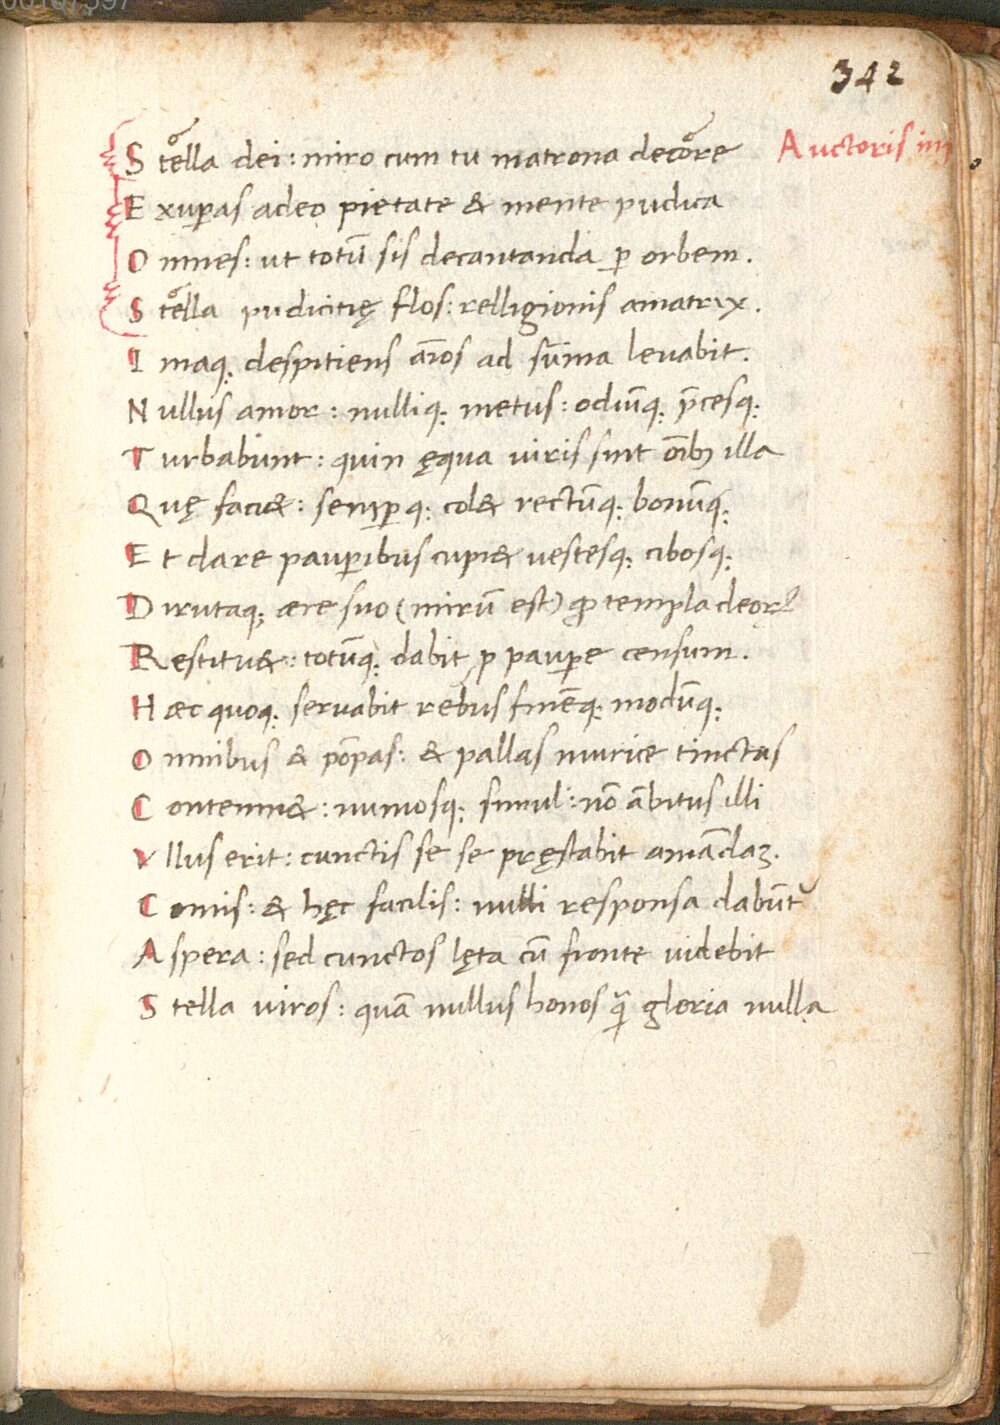 00107397
342
Stella dei: miro cum tu matrona decore
Auctoris iiij
Exuꝑas adeo pietate & mente pudica
Omnes: ut totū sis decantanda ꝑ orbem.
Stella pudicitię flos: relligionis amatrix.
Imaq; despitiens aīos ad sūma levabit.
Nullus amor: nulliq; metus: odiūq; p̄cesq;
Turbabunt: quin ęqua viris sint oīb; illa
Quę faci&: semꝑq; col& rectūq; bonūq;
Et dare pauꝑibus cupi& vestesq; cibosq;
Dirutaq; ære suo (mirū est) ꝓ templa deoꝝ
Restitu&: totūq; dabit ꝓ pauꝑe censum.
Hæc quoq; servabit rebus finēq; modūq;
Omnibus & pōpas: & pallas murice tinctas
Contemn&: numosq; simul: nō ābitus illi
Vllus erit: cunctis se se pręstabit amādaꝫ.
Comis: & hęc facilis: nulli responsa dabūt᷑
Aspera: sed cunctos lęta cū fronte videbit
Stella viros: quā nullus honos qᷓ gloria nulla